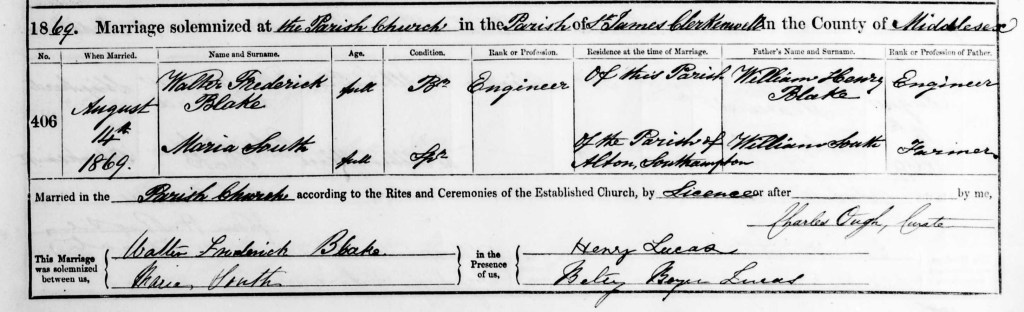 1869. Marriage solemnized at the Parish Church in the Parish of St. James Clerkenwell in the County of Middlesex
No. When Married. Name and Surname. Age. Condition. Rank or Profession. Residence at the time of Marriage. Father's Name and Surname. Rank or Profession of Father.
406 August 14th 1869.
Walter Frederick Blake full Br Engineer Of this Parish William Henry Blake Engineer
Maria South full Spr Of the Parish of Alton, Southampton William South Farmer
Married in the Parish Church according to the Rites and Ceremonies of the Established Church, by Licence or after by me,
Charles Ough, Curate
This Marriage was solemnized between us, Walter Frederick Blake in the Presence of us, Henry Lucas
Maria South Betsy Lucas